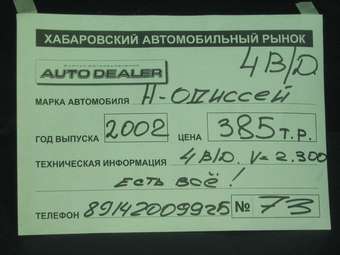 ХАБАРОВСКИЙ АВТОМОБИЛЬНЫЙ РЫНОК
AUTO DEALER 4 В/D.
МАРКА АВТОМОБИЛЯ Н-ОДИССЕЙ
ГОД ВЫПУСКА 2002 ЦЕНА 385 т.р.
ТЕХНИЧЕСКАЯ ИНФОРМАЦИЯ 4 В/D. V=2.300
ЕСТЬ ВСЁ!
ТЕЛЕФОН 89142009925 № 73